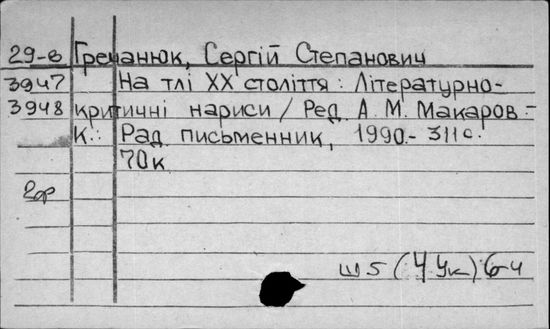 29-в Гречанюк, Сергій Степанович
3947 На тлі XX століття : Літературно-
3948 критичні нариси / Ред. А. М. Макаров.-
К.: Рад. письменник, 1990.- 311 с.
70к.
2др
Ш5(4Ук)6-4